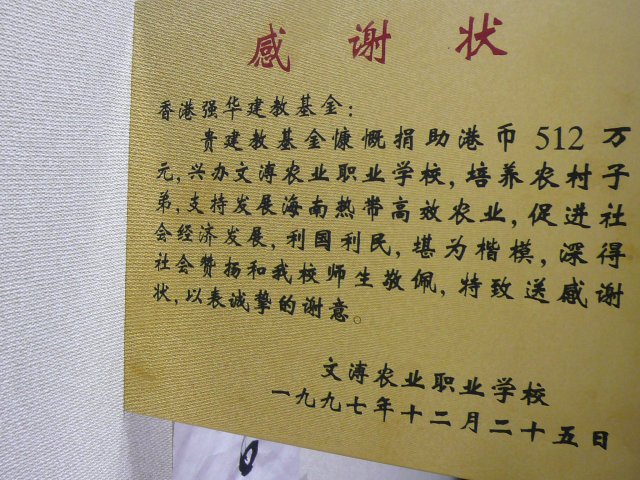 感谢状
香港强华建教基金：
贵建教基金慷慨捐助港币512万
元，兴办文溥农业职业学校，培养农村子
弟，支持发展海南热带高效农业，促进社
会经济发展，利国利民，堪为楷模，深得
社会赞扬和我校师生敬佩，特致送感谢
状，以表诚挚的谢意。
文溥农业职业学校
一九九七年十二月二十五日